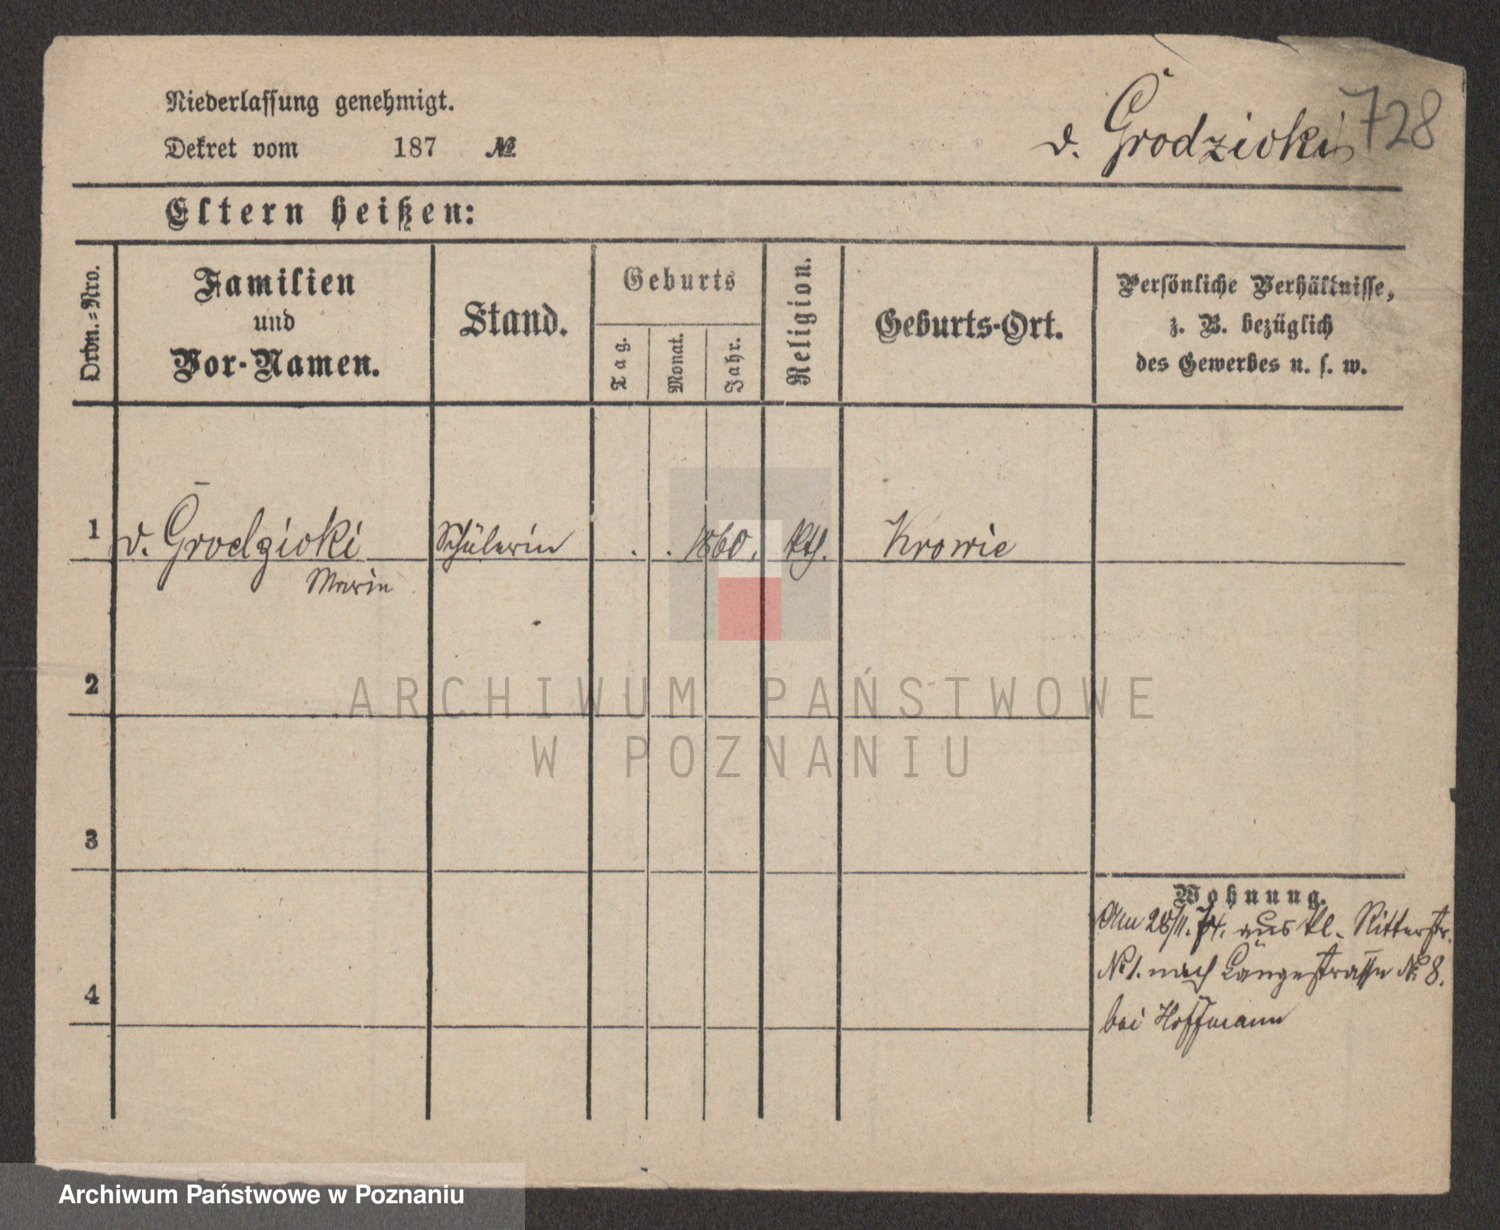 Niederlassung genehmigt.
Dekret vom 187 №
v. Grodzicki 728
Eltern heißen:
Ordn.-Nro.
Familien
und
Vor-Namen.
Stand.
Geburts
Tag.
Monat.
Jahr.
Religion.
Geburts-Ort.
Persönliche Verhältnisse,
z. B. bezüglich
des Gewerbes u. s. w.
1 v. Grodzicki Schülerin . . 1860. kth.
Marie
2
ARCHIWUM PAŃSTWOWE
W POZNANIU
3
4
Wohnung.
Am 28/11. 74. aus kl. Ritterstr.
№ 1. nach Langestrasse № 8.
bei Hoffmann
Archiwum Państwowe w Poznaniu